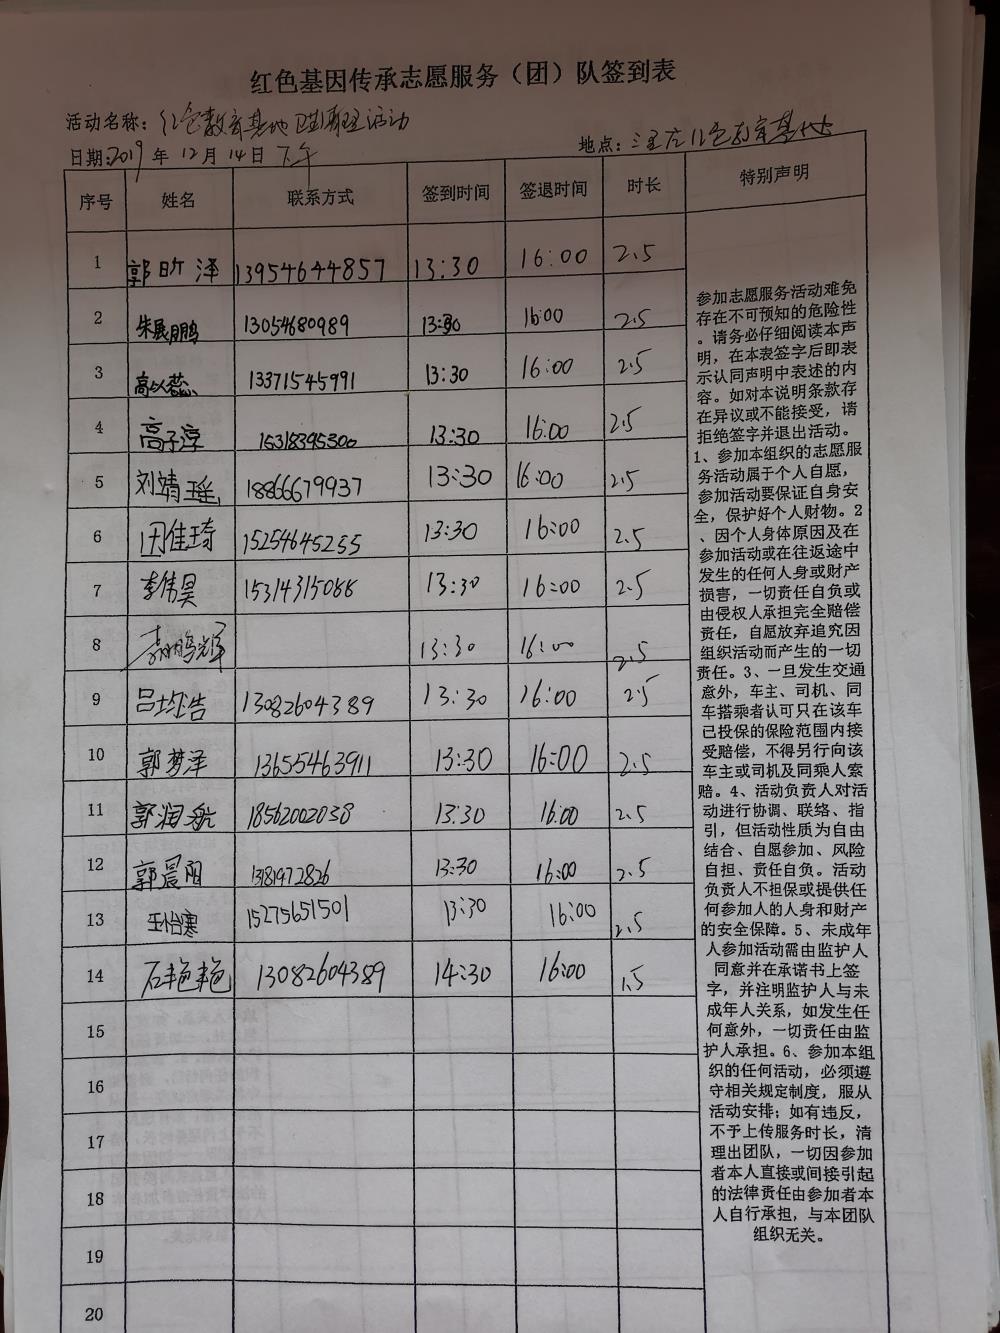 红色基因传承志愿服务（团）队签到表
活动名称：红色教育基地 活动
日期:2019 年 12 月 14 日 下午
地点：三里庄红色教育基地
序号 姓名 联系方式 签到时间 签退时间 时长 特别声明
1 郭昕泽 13954644857 13:30 16:00 2.5
2 朱展鹏 13054680989 13:30 16:00 2.5
3 高以蕊 13371545991 13:30 16:00 2.5
4 高子淳 15318395300 13:30 16:00 2.5
5 刘靖瑶 18866679937 13:30 16:00 2.5
6 田佳琦 15254645255 13:30 16:00 2.5
7 李伟昊 15314315088 13:30 16:00 2.5
8 鹏辉 13:30 16:00 2.5
9 吕均浩 13082604389 13:30 16:00 2.5
10 郭梦泽 13655463911 13:30 16:00 2.5
11 郭润航 18562002038 13:30 16:00 2.5
12 郭晨阳 13181472826 13:30 16:00 2.5
13 王怡寒 15275651501 13:30 16:00 2.5
14 石艳艳 13082604389 14:30 16:00 1.5
15
16
17
18
19
20
参加志愿服务活动难免
存在不可预知的危险性
。请务必仔细阅读本声
明，在本表签字后即表
示认同声明中表述的内
容。如对本说明条款存
在异议或不能接受，请
拒绝签字并退出活动。
1、参加本组织的志愿服
务活动属于个人自愿，
参加活动要保证自身安
全，保护好个人财物。2
、因个人身体原因及在
参加活动或在往返途中
发生的任何人身或财产
损害，一切责任自负或
由侵权人承担完全赔偿
责任，自愿放弃追究因
组织活动而产生的一切
责任。3、一旦发生交通
意外，车主、司机、同
车搭乘者认可只在该车
已投保的保险范围内接
受赔偿，不得另行向该
车主或司机及同乘人索
赔。4、活动负责人对活
动进行协调、联络、指
引，但活动性质为自由
结合、自愿参加、风险
自担、责任自负。活动
负责人不担保或提供任
何参加人的人身和财产
的安全保障。5、未成年
人参加活动需由监护人
同意并在承诺书上签
字，并注明监护人与未
成年人关系，如发生任
何意外，一切责任由监
护人承担。6、参加本组
织的任何活动，必须遵
守相关规定制度，服从
活动安排；如有违反，
不予上传服务时长，清
理出团队，一切因参加
者本人直接或间接引起
的法律责任由参加者本
人自行承担，与本团队
组织无关。